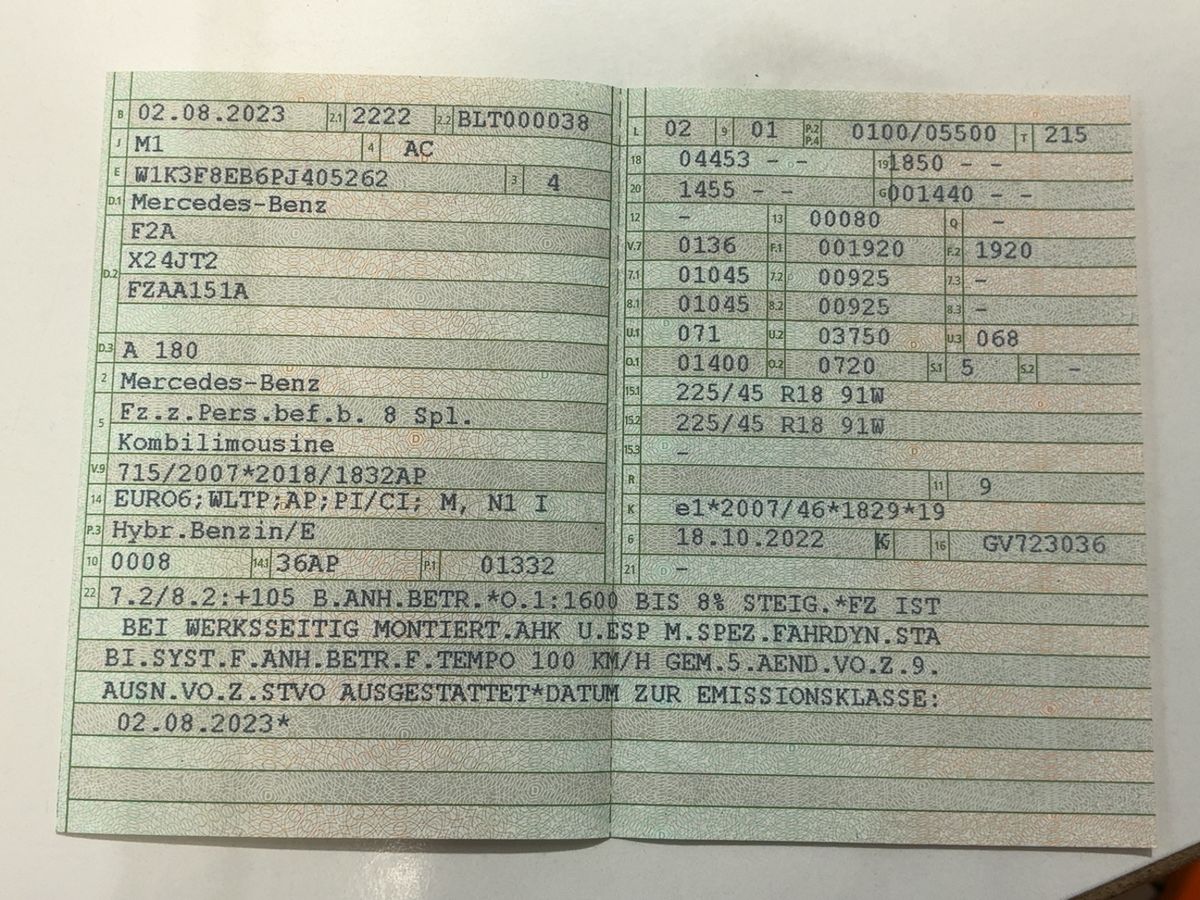 B 02.08.2023 2.1 2222 2.2 BLT000038
J M1 4 AC
E W1K3F8EB6PJ405262 3 4
D.1 Mercedes-Benz
D.2 F2A
X24JT2
FZAA151A
D.3 A 180
2 Mercedes-Benz
5 Fz.z.Pers.bef.b. 8 Spl.
Kombilimousine
V.9 715/2007*2018/1832AP
14 EURO6;WLTP;AP;PI/CI; M, N1 I
P.3 Hybr.Benzin/E
10 0008 14.1 36AP P.1 01332
L 02 9 01 P.2 P.4 0100/05500 T 215
18 04453 - - 19 1850 - -
20 1455 - - G 001440 - -
12 - 13 00080 Q -
V.7 0136 F.1 001920 F.2 1920
7.1 01045 7.2 00925 7.3 -
8.1 01045 8.2 00925 8.3 -
U.1 071 U.2 03750 U.3 068
O.1 01400 O.2 0720 S.1 5 S.2 -
15.1 225/45 R18 91W
15.2 225/45 R18 91W
15.3 -
R 11 9
K e1*2007/46*1829*19
6 18.10.2022 K 16 GV723036
21 -
22 7.2/8.2:+105 B.ANH.BETR.*O.1:1600 BIS 8% STEIG.*FZ IST
BEI WERKSSEITIG MONTIERT.AHK U.ESP M.SPEZ.FAHRDYN.STA
BI.SYST.F.ANH.BETR.F.TEMPO 100 KM/H GEM.5.AEND.VO.Z.9.
AUSN.VO.Z.STVO AUSGESTATTET*DATUM ZUR EMISSIONSKLASSE:
02.08.2023*